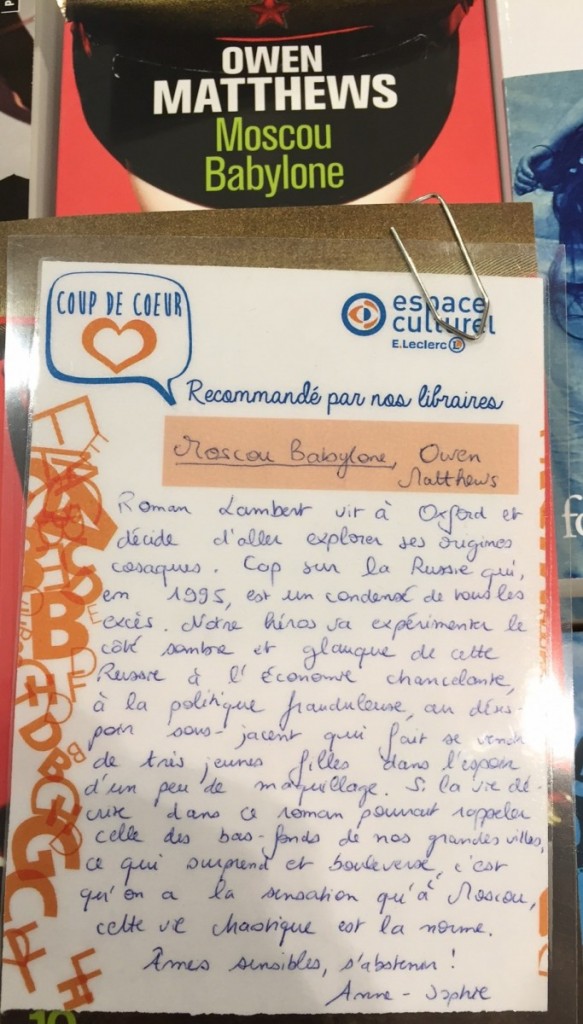 OWEN
MATTHEWS
Moscou
Babylone
COUP DE COEUR
espace
culturel
E.Leclerc L
Recommandé par nos libraires
Moscou Babylone, Owen
Matthews
Roman Lambert vit à Oxford et
décide d'aller explorer ses origines
cosaques. Cap sur la Russie qui,
en 1995, est un condensé de tous les
excès. Notre héros va expérimenter le
côté sombre et glauque de cette
Russie à l'économie chancelante,
à la politique frauduleuse, au déses-
poir sous-jacent qui fait se vendre
de très jeunes filles dans l'espoir
d'un peu de maquillage. Si la vie dé-
crite dans ce roman pourrait rappeler
celle des bas-fonds de nos grandes villes,
ce qui surprend et bouleverse, c'est
qu'on a la sensation qu'à Moscou,
cette vie chaotique est la norme.
Âmes sensibles, s'abstenir !
Anne-Sophie